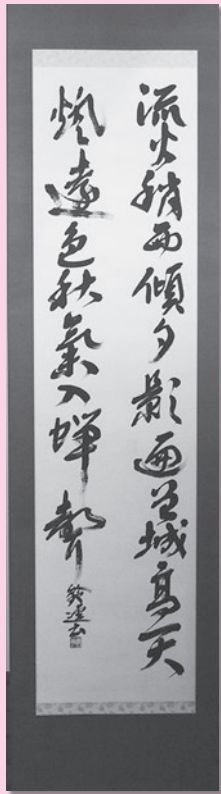 流火稍西傾夕影遍曾城高天
遠色秋氣入蟬聲